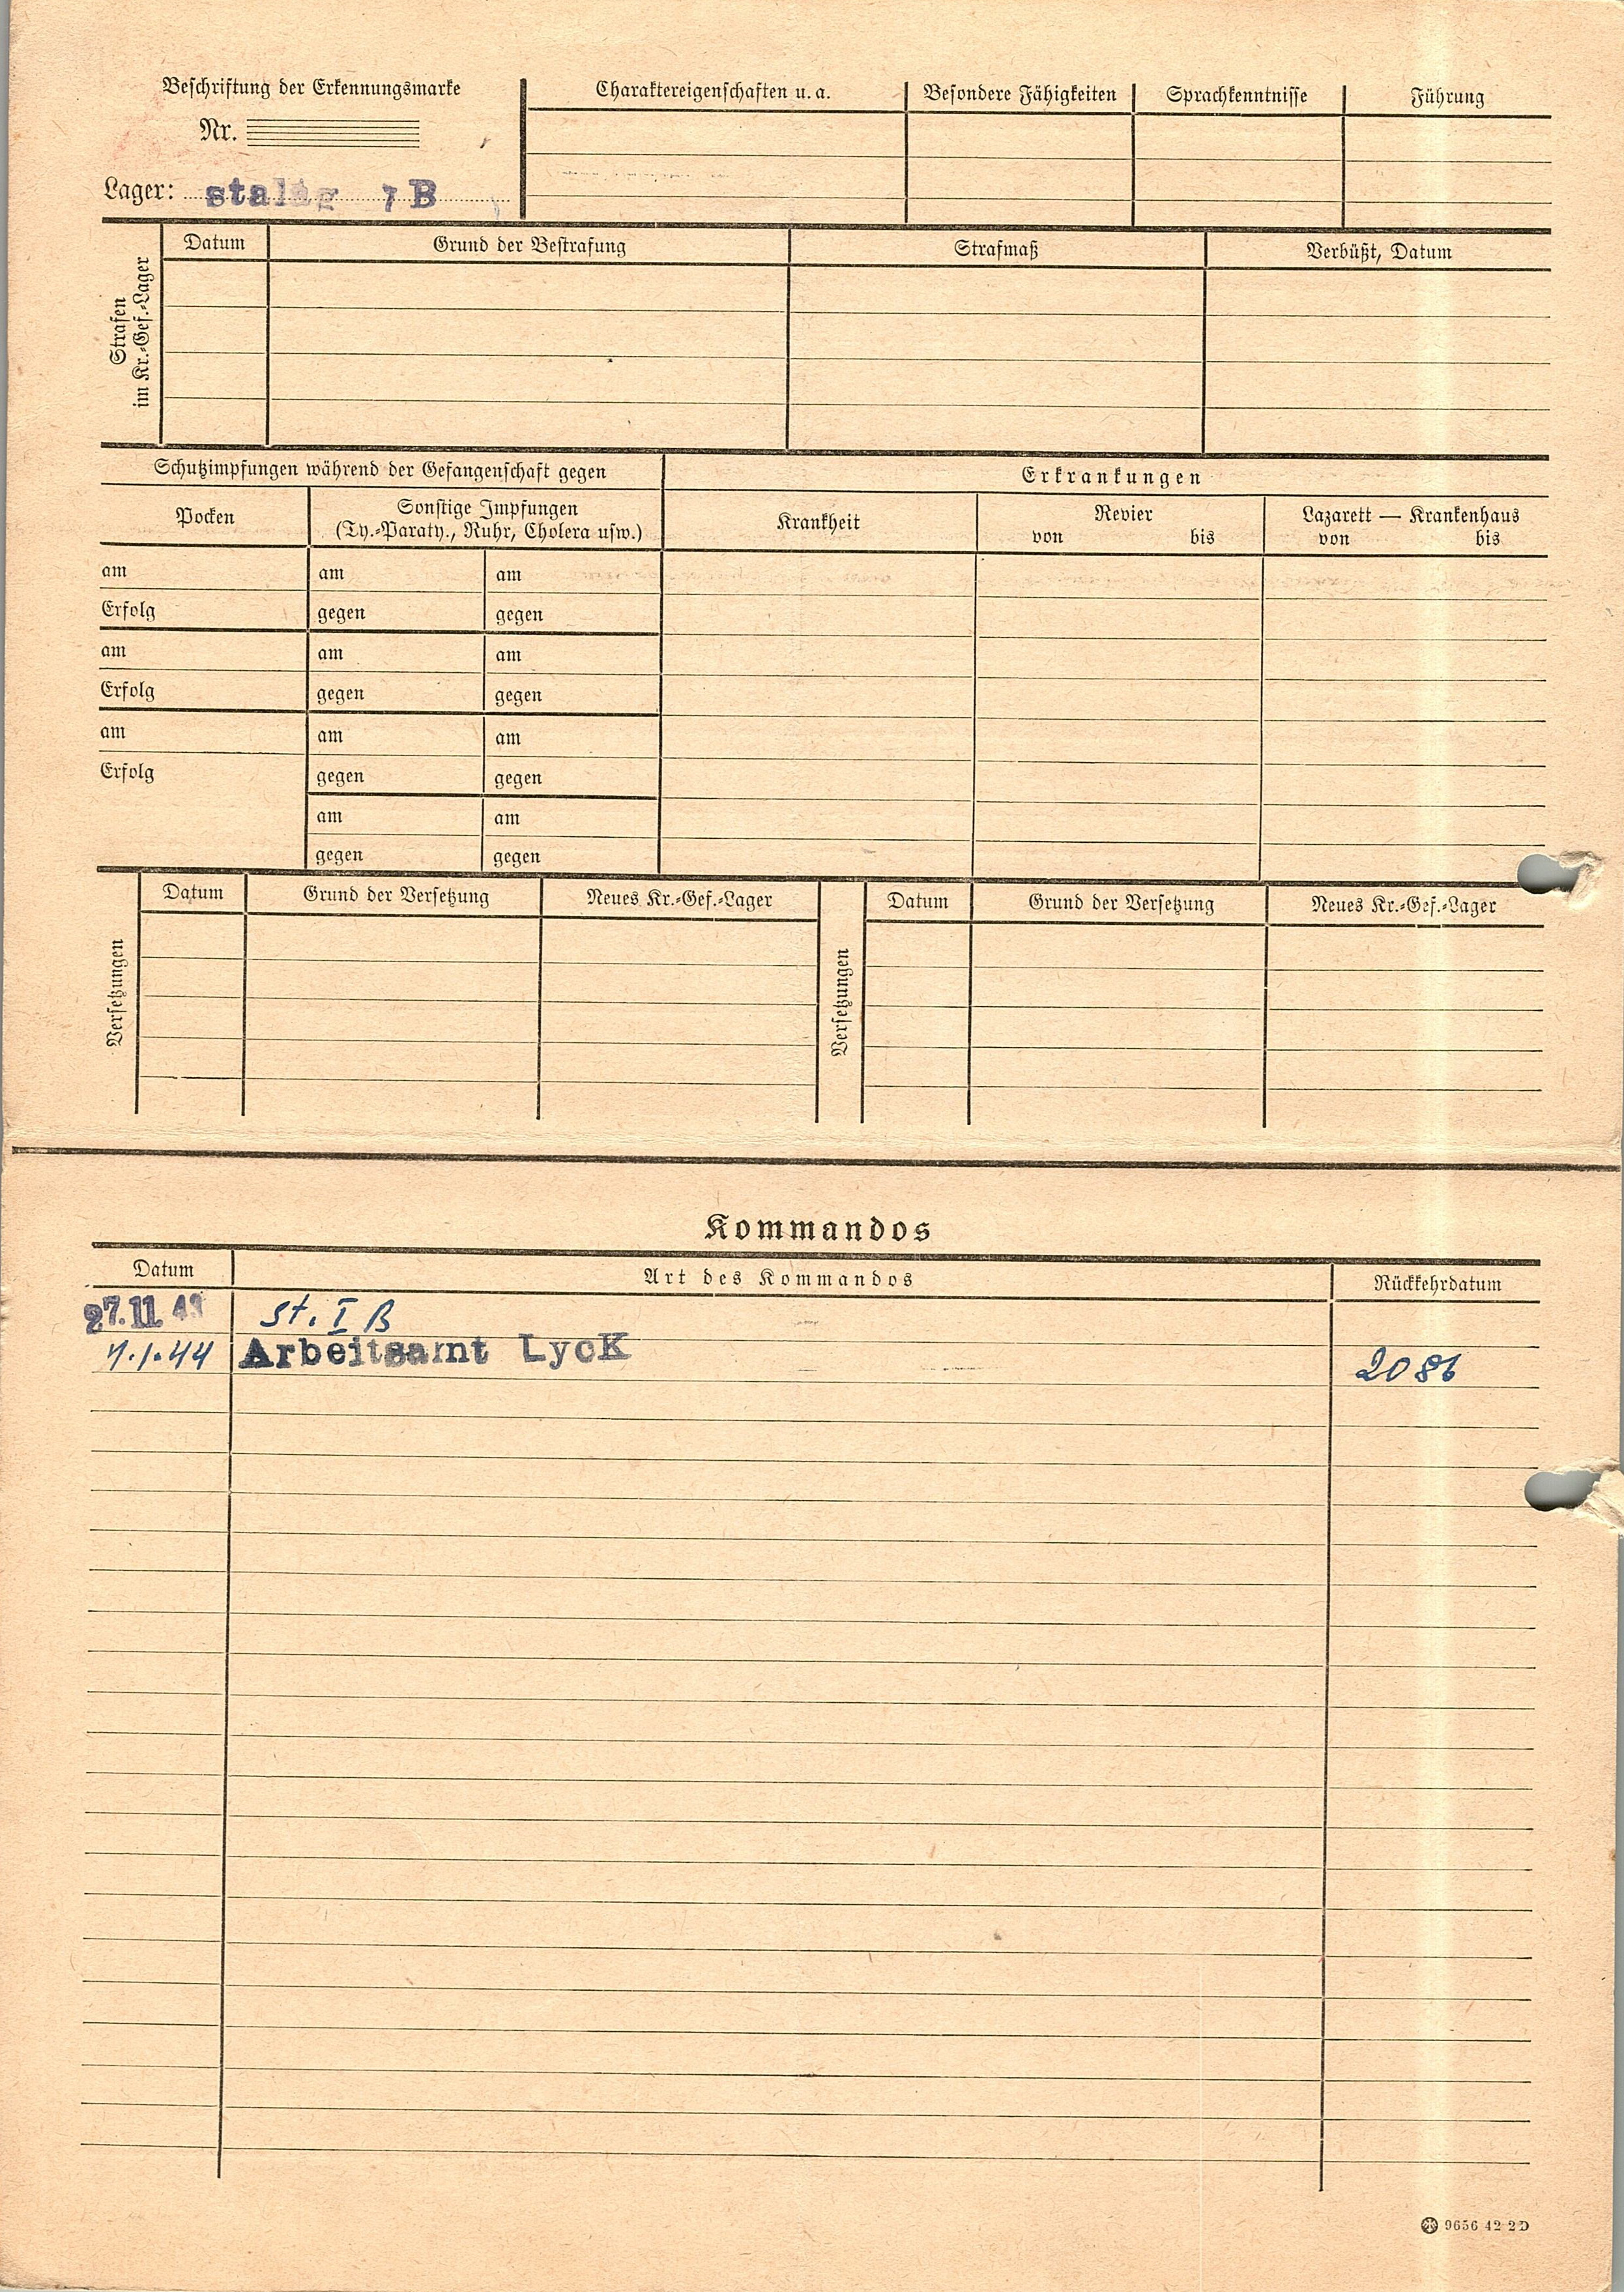 Beschriftung der Erkennungsmarke
Nr.
Lager: stalag I B
Charaktereigenschaften u. a.
Besondere Fähigkeiten
Sprachkenntnisse
Führung
Strafen
im Kr.-Gef.-Lager
Datum
Grund der Bestrafung
Strafmaß
Verbüßt, Datum
Schutzimpfungen während der Gefangenschaft gegen
Erkrankungen
Pocken
Sonstige Impfungen
(Ty.-Paraty., Ruhr, Cholera usw.)
Krankheit
Revier
von bis
Lazarett — Krankenhaus
von bis
am am am
Erfolg gegen gegen
am am am
Erfolg gegen gegen
am am am
Erfolg gegen gegen
am am
gegen gegen
Versetzungen
Datum Grund der Versetzung Neues Kr.-Gef.-Lager
Versetzungen
Datum Grund der Versetzung Neues Kr.-Gef.-Lager
Kommandos
Datum Art des Kommandos Rückkehrdatum
27.11.43 St. I B
7.1.44 Arbeitsamt LycK 2086
9656 42 2D